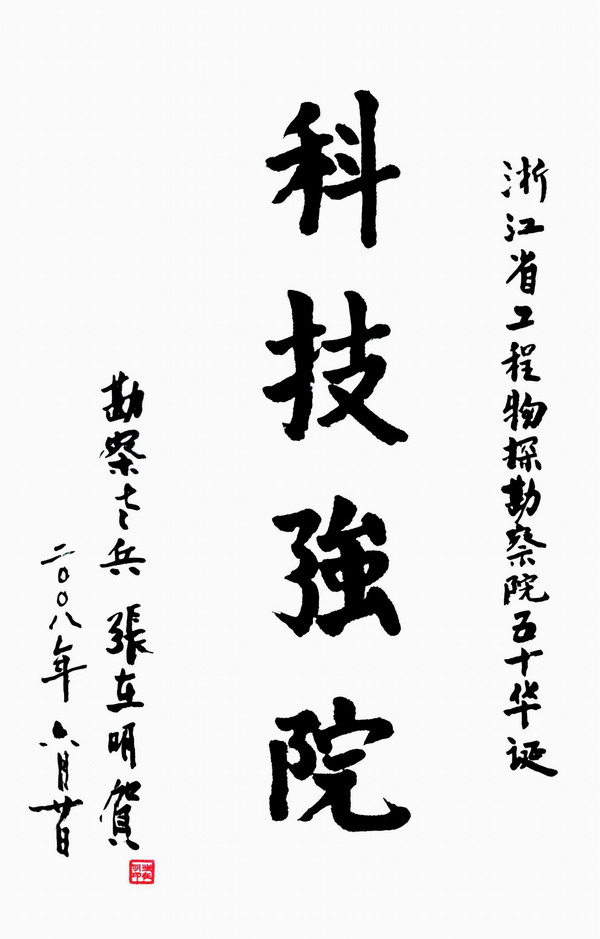 浙江省工程物探勘察院五十华诞
科技強院
勘察老兵 張在明賀
二〇〇八年六月廿日